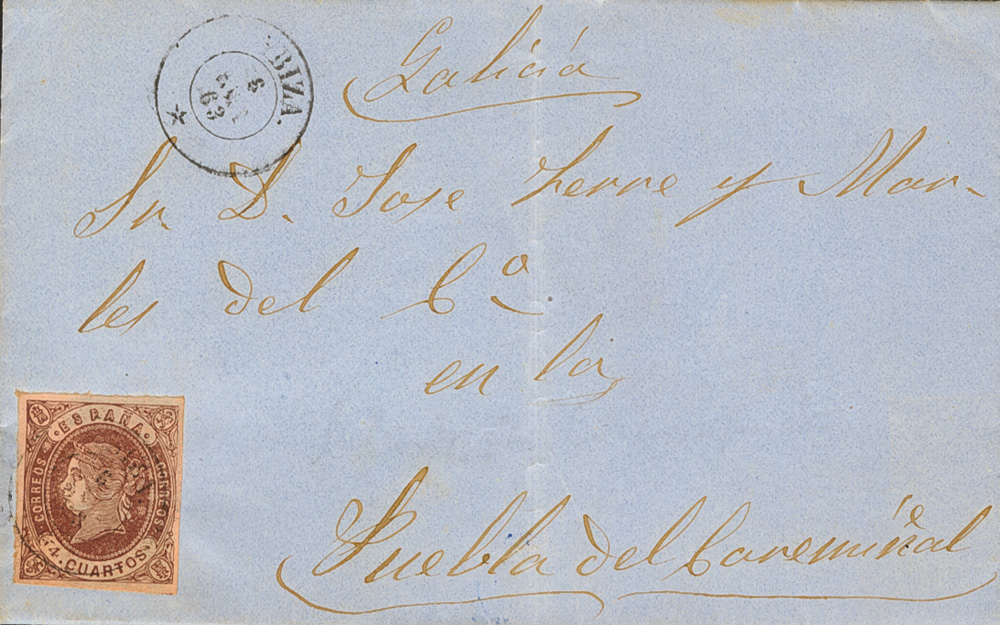 IBIZA.
8
62
Galicia
Sr. D. Jose Ferre y Mar-
les del Cº
en la
Puebla del Caremiñal
ESPAÑA
CORREOS CORREOS
4. CUARTOS